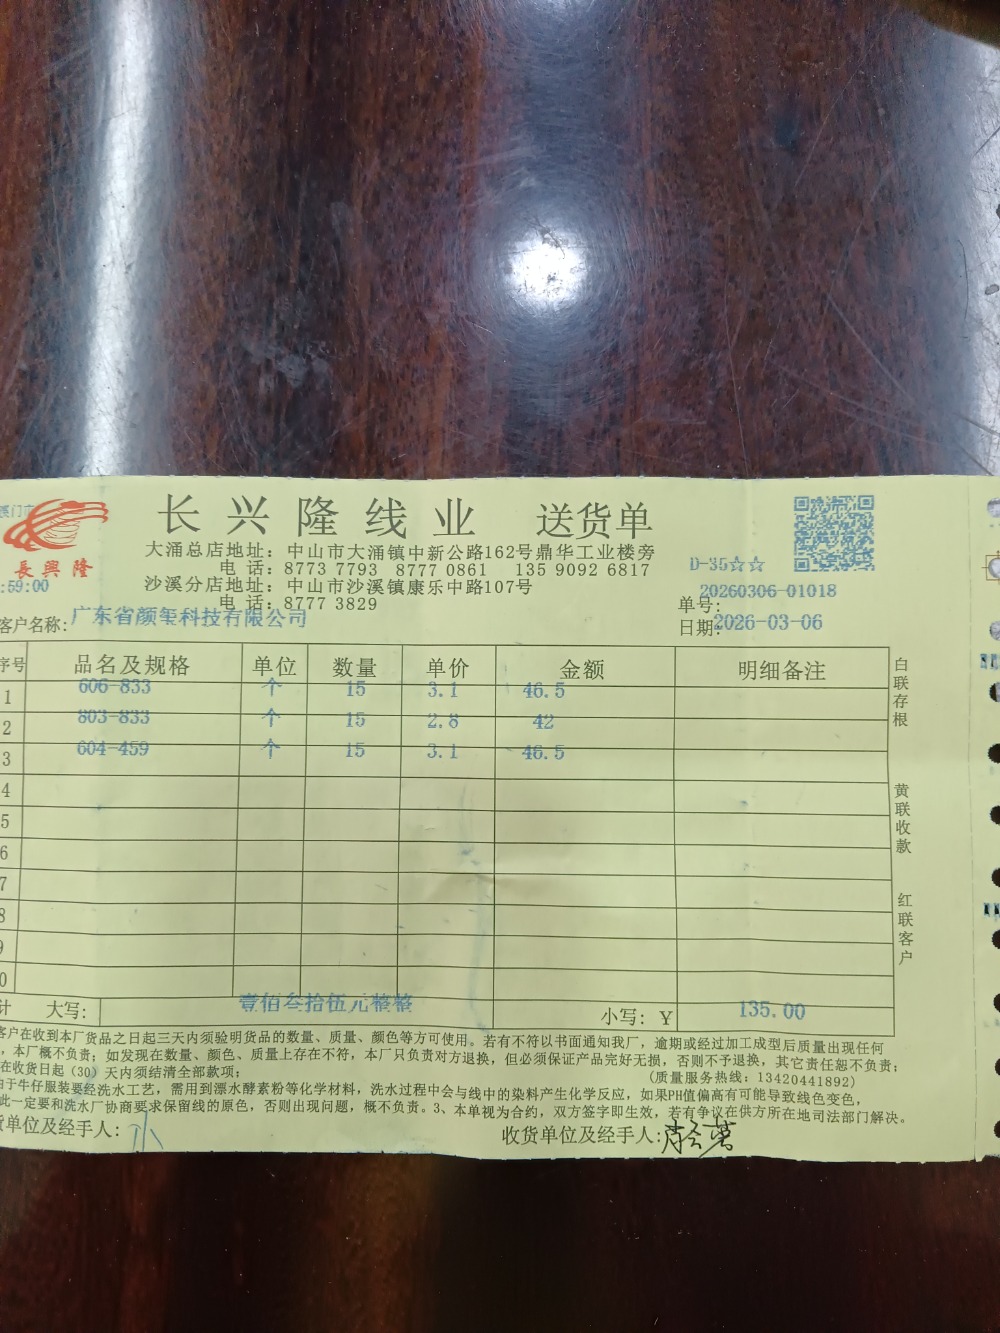 长兴隆线业 送货单
大涌总店地址：中山市大涌镇中新公路162号鼎华工业楼旁
电 话：8773 7793 8777 0861 135 9092 6817
沙溪分店地址：中山市沙溪镇康乐中路107号
电 话：8777 3829
長興隆
:59:00
D-35☆☆
单号：20260306-01018
日期：2026-03-06
客户名称：广东省颜玺科技有限公司
序号 品名及规格 单位 数量 单价 金额 明细备注
1 606-833 个 15 3.1 46.5
2 803-833 个 15 2.8 42
3 604-459 个 15 3.1 46.5
4
5
6
7
8
9
0
计 大写：壹佰叁拾伍元整整 小写：Y 135.00
白联存根
黄联收款
红联客户
客户在收到本厂货品之日起三天内须验明货品的数量、质量、颜色等方可使用。若有不符以书面通知我厂，逾期或经过加工成型后质量出现任何
，本厂概不负责；如发现在数量、颜色、质量上存在不符，本厂只负责对方退换，但必须保证产品完好无损，否则不予退换，其它责任恕不负责；
在收货日起（30）天内须结清全部款项； (质量服务热线：13420441892)
由于牛仔服装要经洗水工艺，需用到漂水酵素粉等化学材料，洗水过程中会与线中的染料产生化学反应，如果PH值偏高有可能导致线色变色，
此一定要和洗水厂协商要求保留线的原色，否则出现问题，概不负责。3、本单视为合约，双方签字即生效，若有争议在供方所在地司法部门解决。
货单位及经手人： 收货单位及经手人：